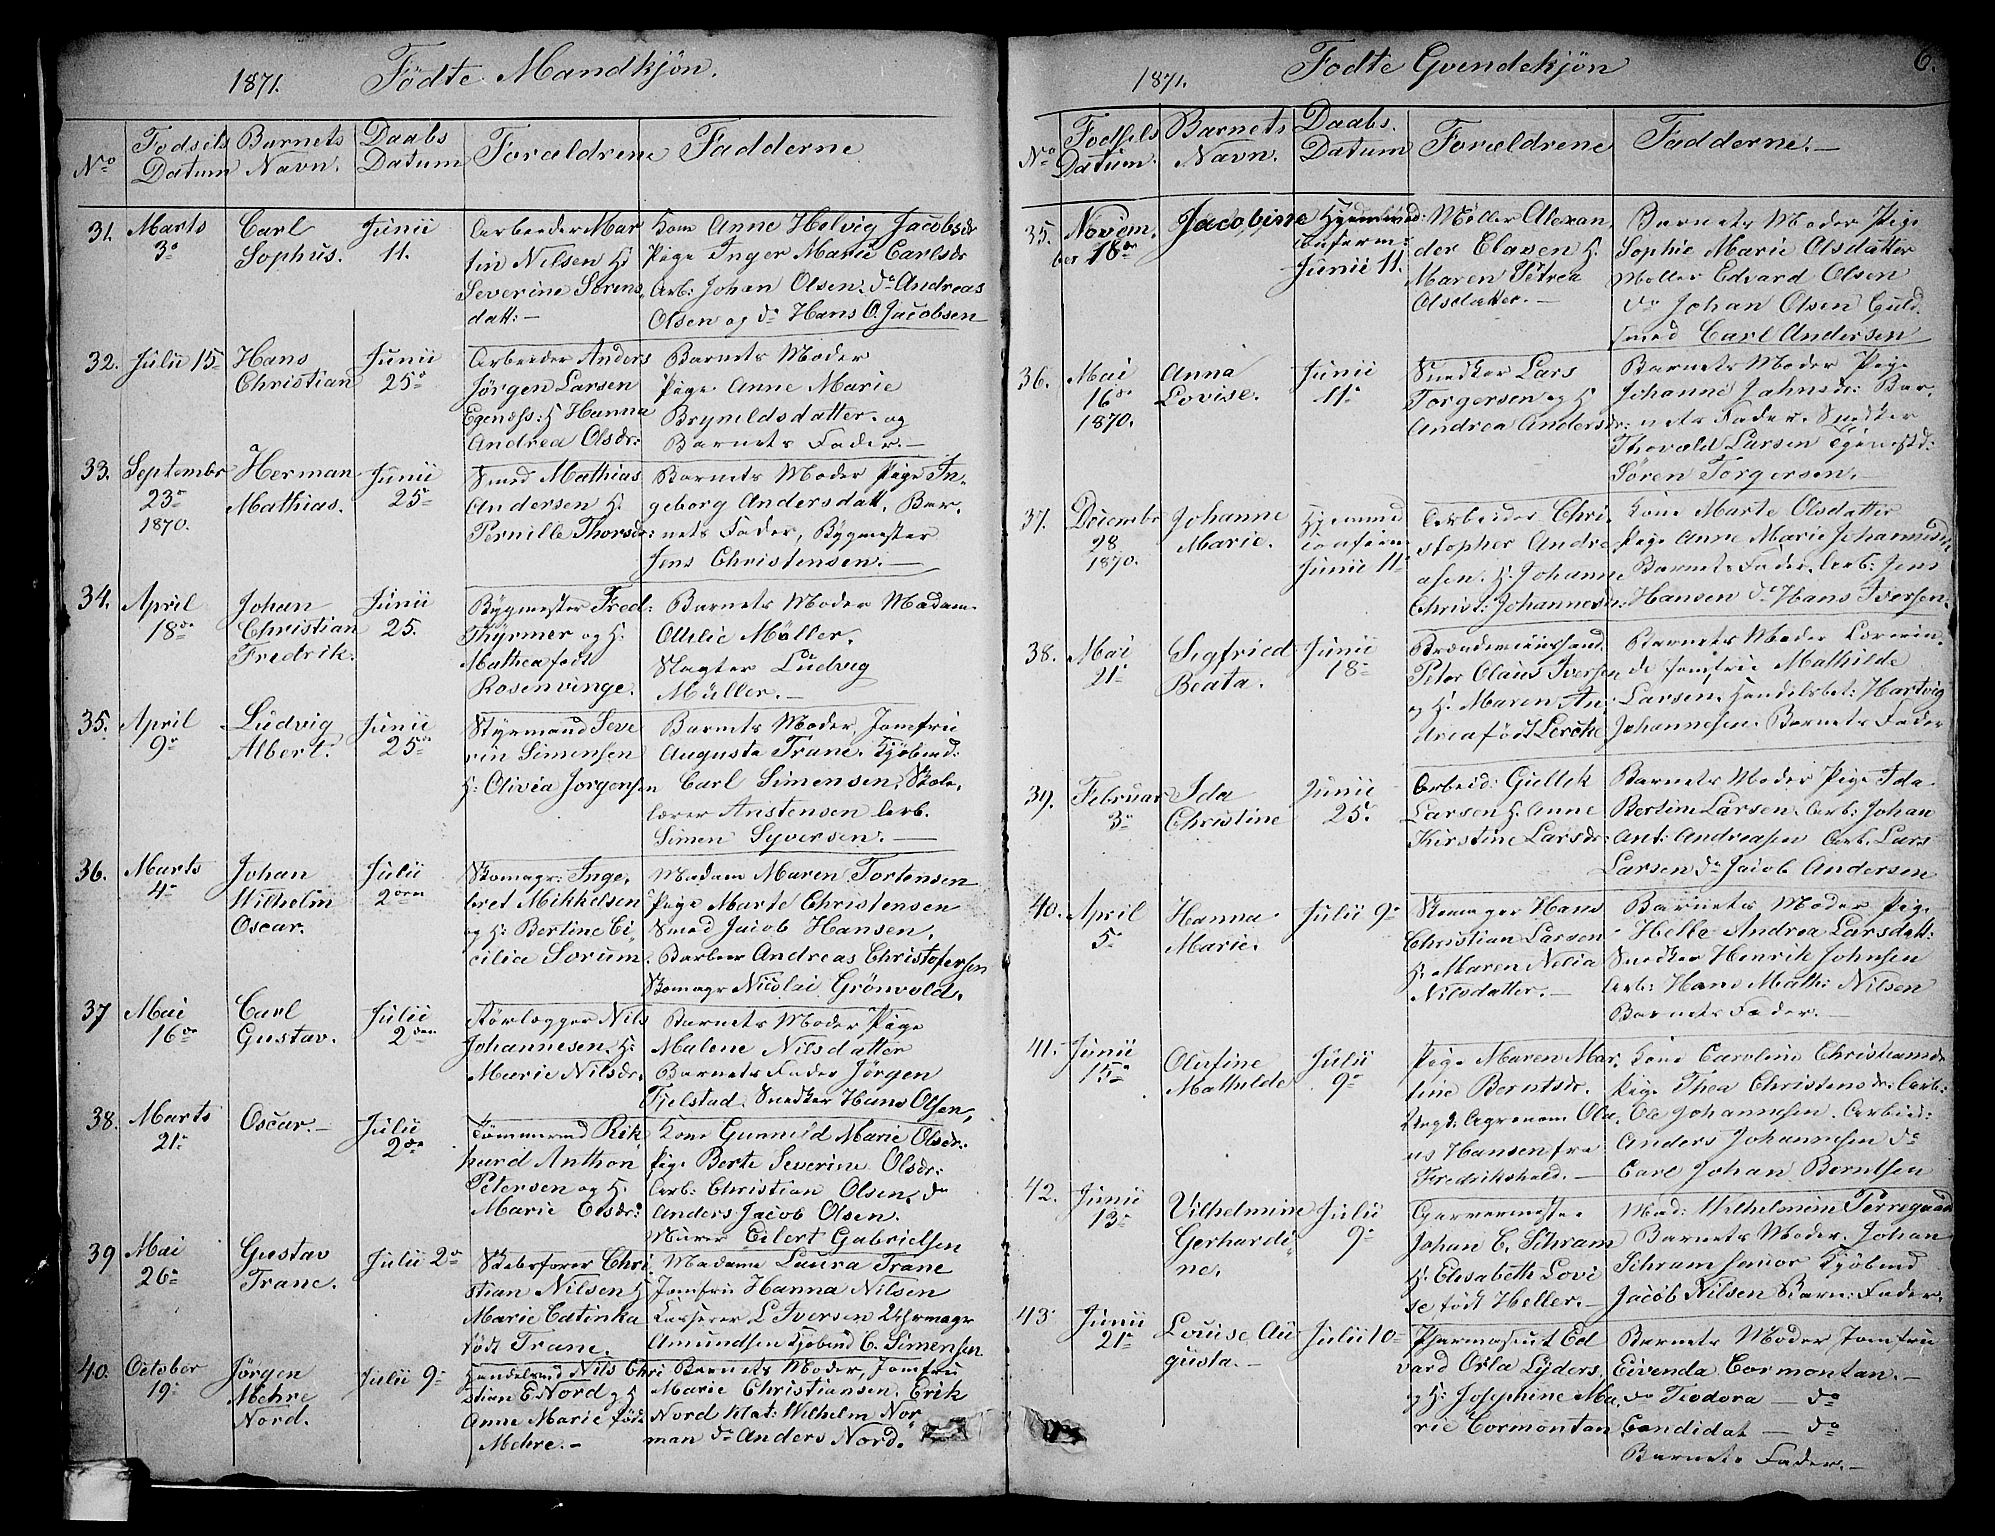 1871. Födte Mandkjøn.
No
Födsels Datum
Barnets Navn.
Daabs Datum
Forældrene
Fadderne
31. Marts 3o Carl Sophus. Junii 11.
Arbeider Mar
tin Nilsen H:
Severine Sørens,
datt: –
Kone Anne Helvig Jacobsdr
Pige Inger Marie Carlsdr
Arb: Johan Olsen. do Andreas
Olsen og do Hans O. Jacobsen
32. Julii 15 Hans Christian Junii 25o
Arbeider Anders
Jörgen Larsen
H Hanna
Andrea Olsdr:
Barnets Moder
Pige Anne Marie
Bryneldsdatter. og
Barnets Fader. –
33. Septembr 23 1870. Herman Mathias. Junii 25
Smed Mathias
Andersen H:
Pernille Thorsdr:
Barnets Moder Pige In,
geborg Andersdatt, Bar,
nets Fader, Bygmester
Jens Christensen. –
34. April 18de Johan Christian Fredrik. Junii 25.
Bygmester Fred:
Thyrmer og H:
Mathea födt
Rosenvinge.
Barnets Moder Madam
Ottilie Möller.
Slagter Ludvig
Müller. –
35. April 9 Ludvig Albert. Junii 25
Styrmand Seve
rin Simensen
H: Olivia Jorgensen
Barnets Moder, Jomfru
Augusta Trane. Kjöbmd:
Carl Simensen, Skole,
lærer Anstensen Arb.
Simen Syversen. –
36. Marts 4 Johan Wilhelm Oscar. Julii 2den
Skomagr: Inge,
bret Mikkelsen
og H: Bertine Ce,
cilia Sorum
Madam Maren Tortensen
Pige Marte Christensen
Smed Jacob Hansen,
Barbeer Andreas Christofersen
Skomagr Nicolai Grönvold.
37 Mai 16de Carl Gustav. Julii 2den
Rörlægger Nils
Johannesen. H:
Marie Nilsdr.
Barnets Moder Pige
Malene Nilsdatter
Barnets Fader Jörgen
Tjelstad. Snedker Hans Olsen,
38. Marts 21 Oscar. – Julii 2de
Tömmermd Rik
hard Anthon
Petersen og H.
Marie
Kone Gunnild Marie Olsdr:
Pige Berte Severine Olsdr:
Arb: Christian Olsen, do
Anders Jacob Olsen.
Murer Eilert Gabrielsen
39 Mai 26 Gustav Trane. Julii 2
Skibsförer Chri
stian Nilsen H
Marie Catinka
födt Trane.
Madame Laura Trane
Jomfru Hanna Nilsen
Kasserer L Iversen Uhrmagr
Amundsen Kjöbmd C. Simensen
40. October 19 Jörgen Mehre Nord. Julii 9
Handelsmd Nils Chri
stian E Nord og H
Anne Marie födt
Mehre. –
Barnets Moder, Jomfru
Marie Christiansen. Erik
Nord Klat: Wilhelm Nor
man do Anders Nord.
1871. Fodte Qvindekjön 6.
No
Fodsels Datum.
Barnets Navn.
Daabs. Datum
Forældrene
Fadderne. –
35. Novem, ber 18de Jacobine Hjemmed: Junii 11.
Möller Alexan
der Clausen H.
Maren Petrea
Olsdatter. –
Barnets Moder Pige
Sophie Marie Olsdatter
Moller Edvard Olsen
do Johan Olsen Guld,
smed Carl Andersen
36. Mai 16de 1870. Anna Lovise. Junii 11
Snedker Lars
Torgersen og H
Andrea Andersdr:
Barnets Moder Pige
Johanne Jahnsdr: Bar,
nets Fader. Snedker
Thorvald Larsen
Sören Torgersen. –
37. Decembr 28 1870. Johanne Marie. Hjemmed Junii 11
Arbeider Chri,
stopher Andre
asen. H. Johanne
Christ: Johannesdr:
Kone Marte Olsdatter
Pige Anne Marie Johannesdr,
Barnets Fader, Arb: Jens
Hansen do Hans Iversen.
38. Mai 21 Sigfried Beata. Junii 18
Peter Olaus Iversen
og H. Maren An,
drea födt Lerche
Barnets Moder Lærerin,
de Jomfru Mathilde
Larsen. Handelsbet: Hartvig
Johannesen. Barnets Fader
39. Februar 3 Ida Christine Junii 25
Arbeid: Gullik
Larsen H. Anne
Kirstine Larsdr:
Barnets Moder Pige Ida
Bertine Larsen. Arb: Johan
Ant: Andreasen Arb. Lars
Larsen do Jacob Andersen
40. April 5 Hanna Marie. Julii 9
Skomager Hans
Christian Larsen
H. Maren Nelia
Nilsdatter. –
Barnets Moder Pige
Helle Andrea Larsdatt:
Snedker Henrik Johnsen
Arb: Hans Math: Nilsen
Barnets Fader. –
41. Junii 15 Olufine Mathilde Julii 9
Pige Maren Mar,
tine Berntsdr.
Ungk. Agronom Ola,
us Hansen fra
Fredrikshald. –
Kone Caroline Christiansdr
Pige Thea Christensdr: Arb:
Ole Johannesen. Arbeid:
Anders Johannesen do
Carl Johan Berntsen
42. Junii 13 Vilhelmine Gerhardi, ne. Julii 9
Garvermester
Johan C. Schram
H. Elisabeth Lovi
se födt Heller. –
Mad: Wilhelmine Terregaard
Barnets Moder, Johan
Schram senior Kjöbmd
Jacob Nilsen Barn: Fader.
43 Junii 21 Louise Au gusta. – Julii 10
Pharmaceut Ed
vard Orla Lyders,
og H: Josephine Ma,
rie Cormontan
Barnets Moder Jomfru
Eivenda Cormontan. –
do Teodora – do
Candidat – do
Barnets Fader. –